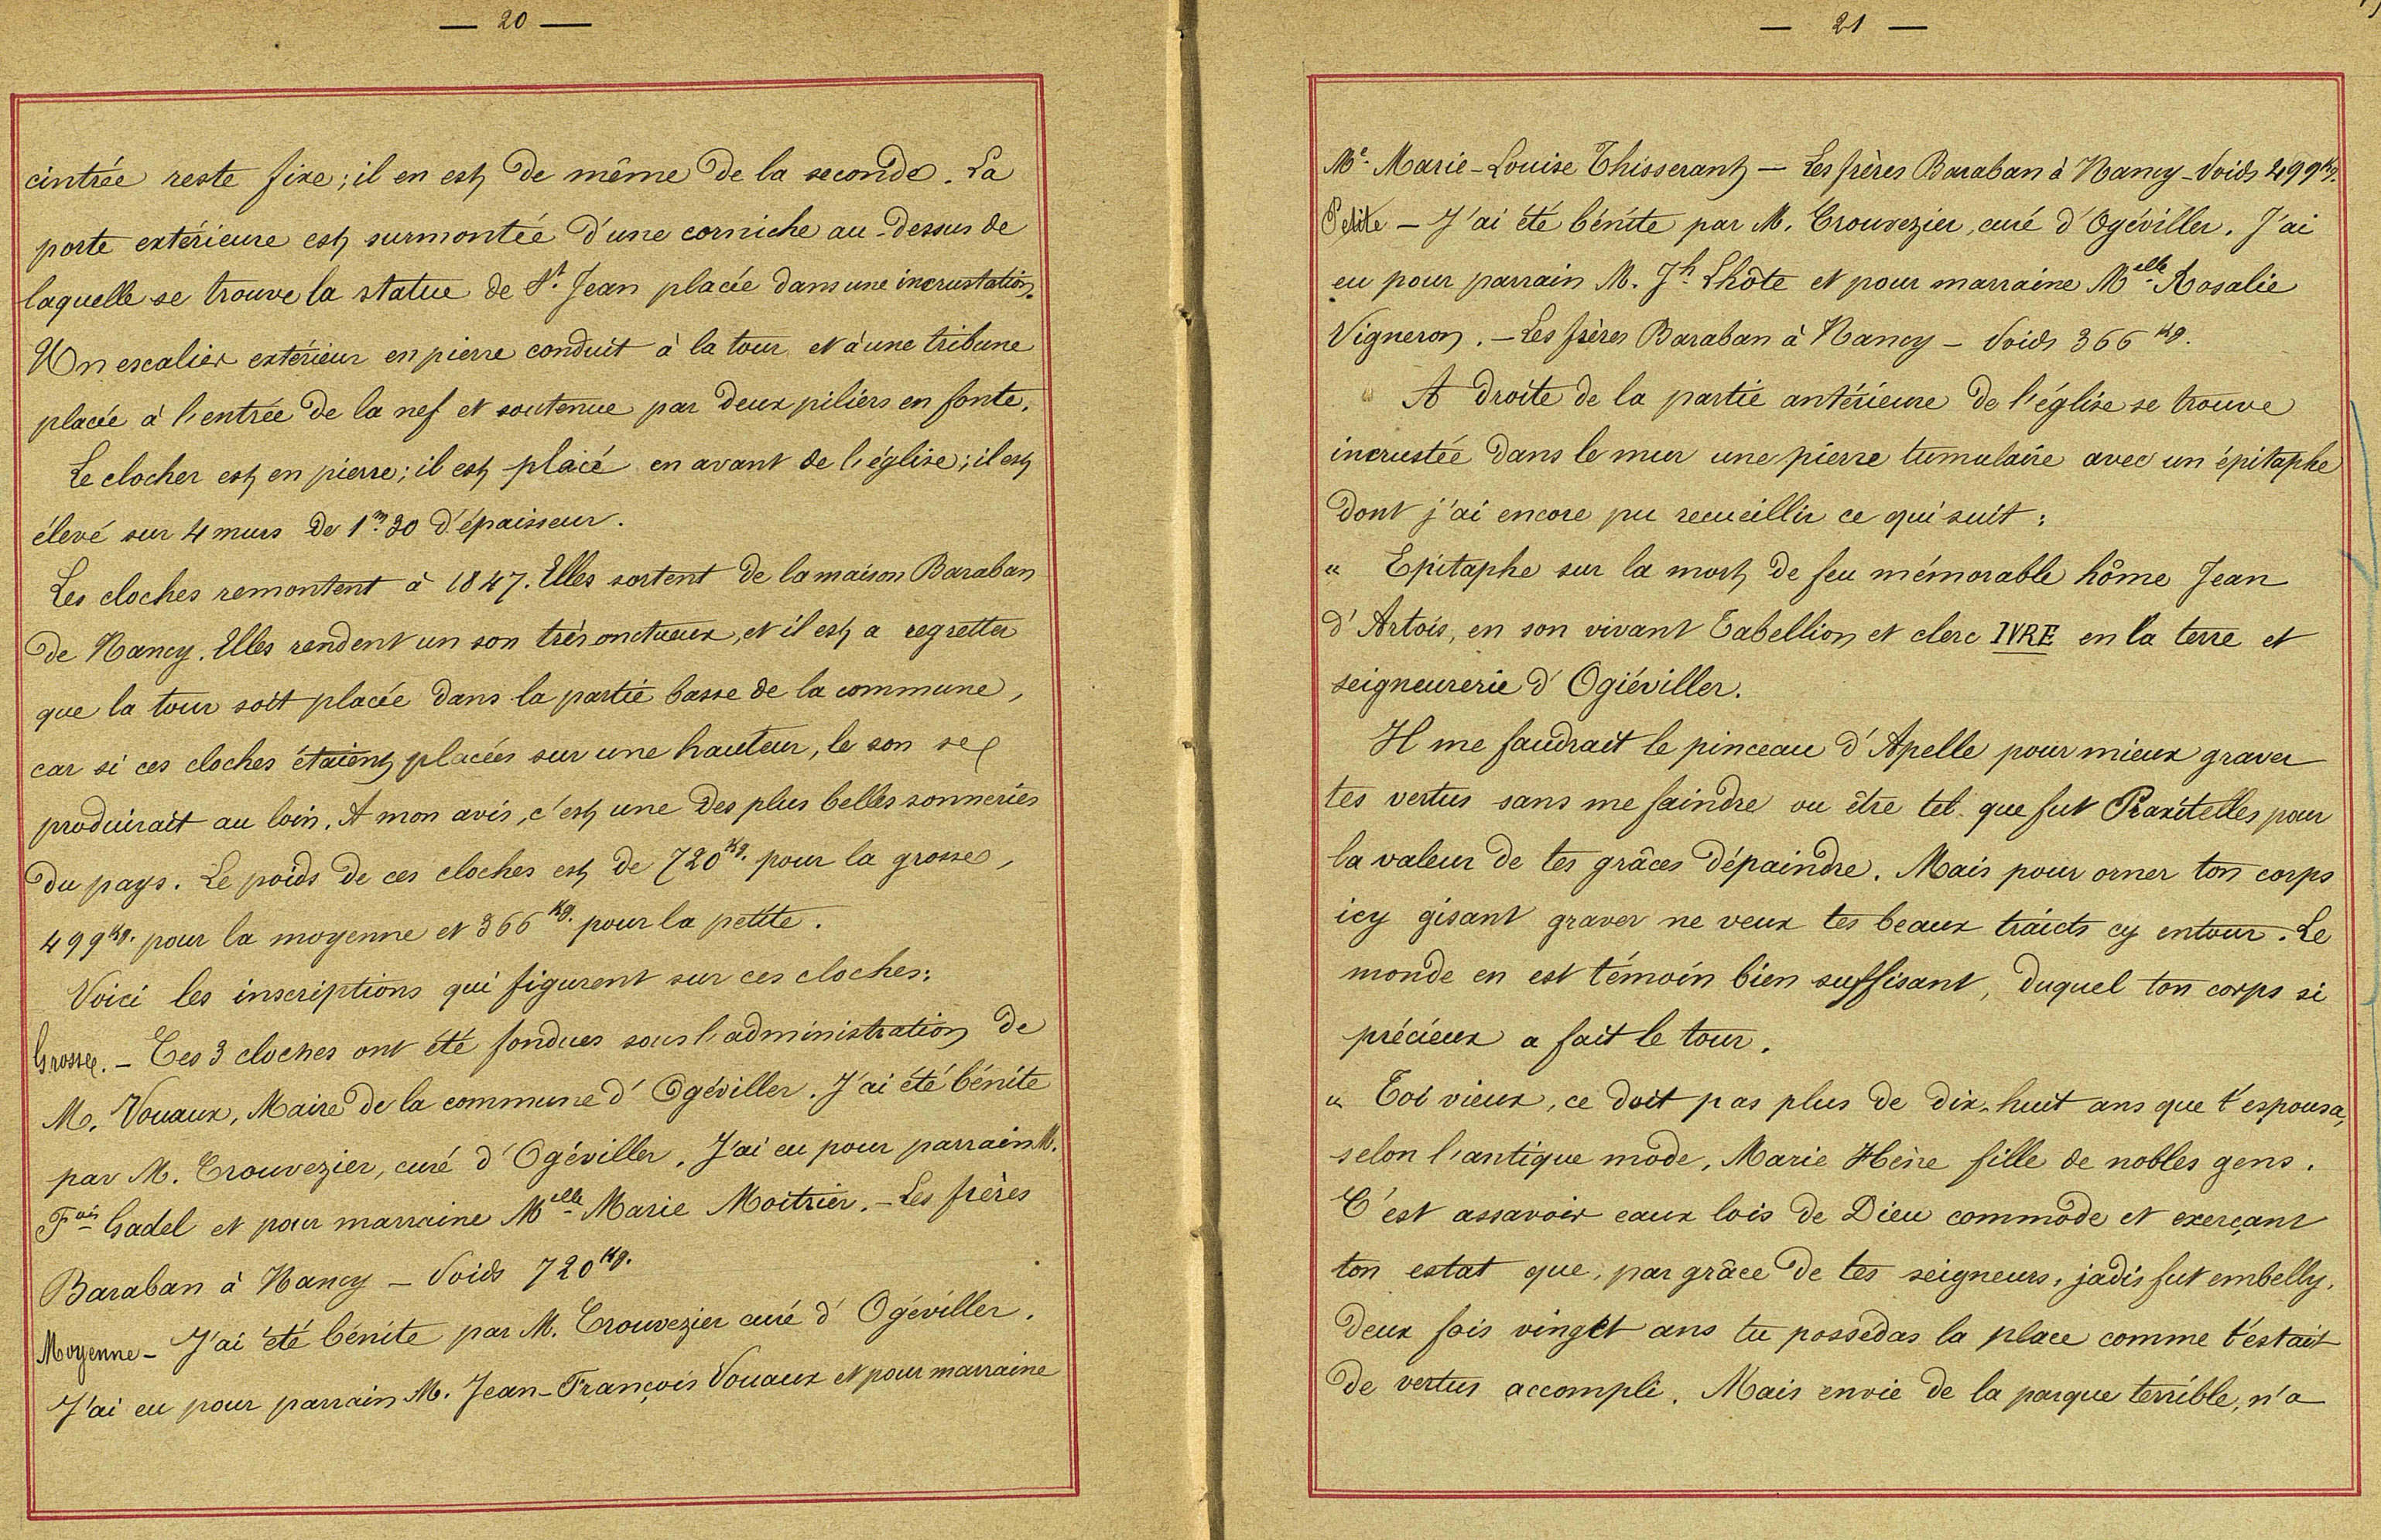 — 20 —
cintrée reste fixe ; il en est de même de la seconde. La
porte extérieure est surmontée d'une corniche au-dessus de
laquelle se trouve la statue de St. Jean placée dans une incrustation.
Un escalier extérieur en pierre conduit à la tour et à une tribune
placée à l'entrée de la nef et soutenue par deux piliers en fonte.
Le clocher est en pierre ; il est placé en avant de l'église ; il est
élevé sur 4 murs de 1m.30 d'épaisseur.
Les cloches remontent à 1847. Elles sortent de la maison Baraban
de Nancy. Elles rendent un son très onctueux, et il est a regretter
que la tour soit placée dans la partie basse de la commune,
car si ces cloches étaient placées sur une hauteur, le son se
produirait au loin. A mon avis, c'est une des plus belles sonneries
du pays. Le poids de ces cloches est de 720 Kg. pour la grosse,
499 Kg. pour la moyenne et 366 Kg. pour la petite.
Voici les inscriptions qui figurent sur ces cloches :
Grosse. — Ces 3 cloches ont été fondues sous l'administration de
M. Vouaux, Maire de la commune d'Ogéviller. J'ai été bénite
par M. Trouvezier, curé d'Ogéviller. J'ai eu pour parrain M.
Fois Gadel et pour marraine Melle Marie Moitrier. — Les frères
Baraban à Nancy — Poids 720 Kg.
Moyenne — J'ai été bénite par M. Trouvezier curé d'Ogéviller.
J'ai eu pour parrain M. Jean-François Vouaux et pour marraine
— 21 —
Me. Marie-Louise Thisserant — Les frères Baraban à Nancy — Poids 499 Kg.
Petite — J'ai été bénite par M. Trouvezier, curé d'Ogéviller. J'ai
eu pour parrain M. Jh. Lhôte et pour marraine Melle Rosalie
Vigneron. — Les frères Baraban à Nancy — Poids 366 Kg.
A droite de la partie antérieure de l'église se trouve
incrustée dans le mur une pierre tumulaire avec un épitaphe
dont j'ai encore pu recueillir ce qui suit :
« Epitaphe sur la mort de feu mémorable hôme Jean
d'Artois, en son vivant Tabellion et clerc IVRE en la terre et
seigneurerie d'Ogiéviller.
Il me faudrait le pinceau d'Apelle pour mieux graver
tes vertus sans me faindre ou être tel que fut Praxitelles pour
la valeur de tes grâces dépaindre. Mais pour orner ton corps
icy gisant graver ne veux tes beaux traicts cy entour. Le
monde en est témoin bien suffisant, duquel ton corps si
précieux a fait le tour.
« Toi vieux, ce doit pas plus de dix-huit ans que t'espousa,
selon l'antique mode, Marie Hèire fille de nobles gens.
C'est assavoir eaux lois de Dieu commode et exerçant
ton estat que, par grâce de tes seigneurs, jadis fut embelly,
deux fois vingtt ans tu possédas la place comme t'estait
de vertus accompli. Mais envie de la parque terrible, n'a